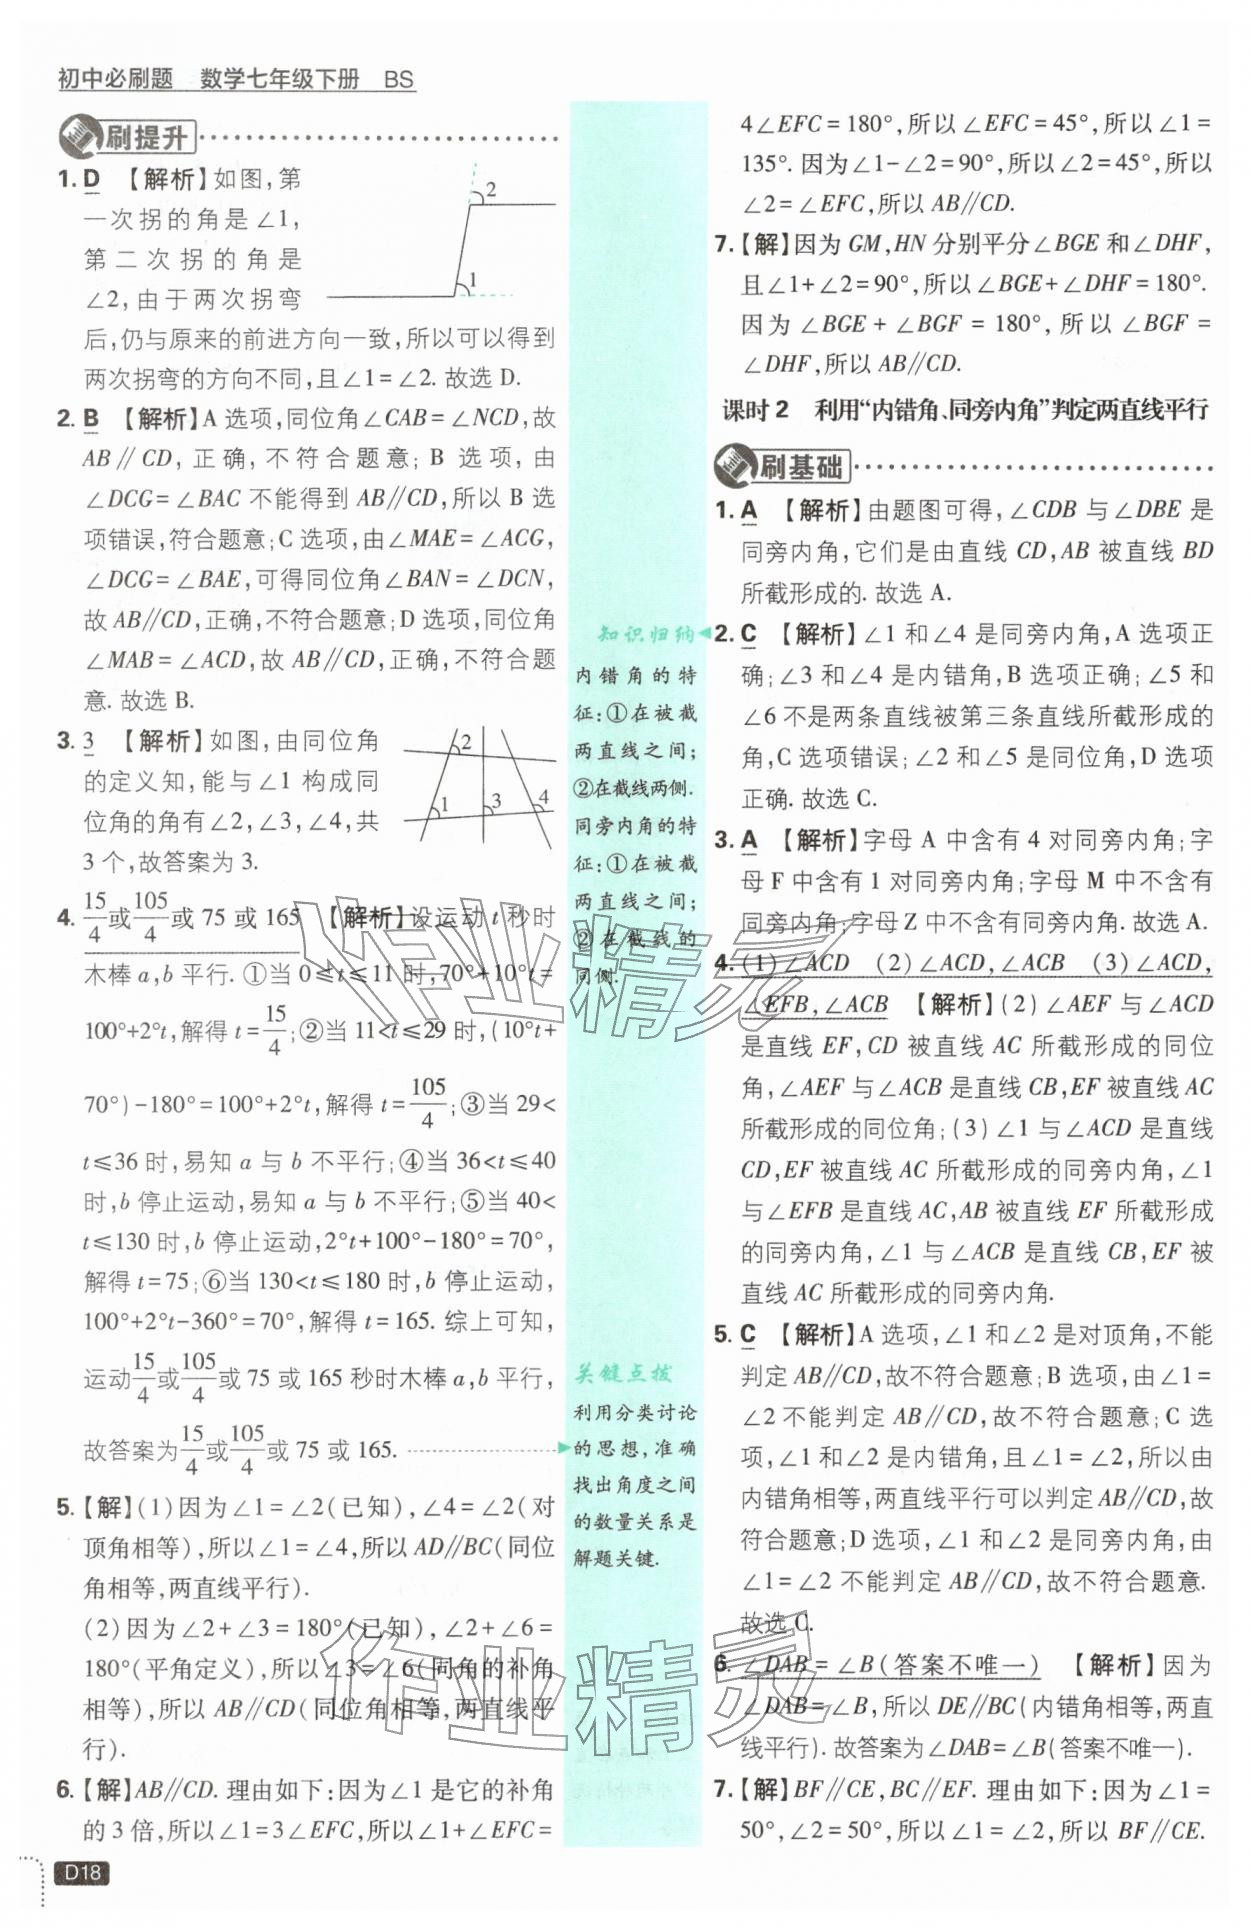 初中必刷题 数学七年级下册 BS
刷提升
1. D 【解析】如图,第
一次拐的角是∠1,
第二次拐的角是
∠2,由于两次拐弯
后,仍与原来的前进方向一致,所以可以得到
两次拐弯的方向不同,且∠1=∠2. 故选 D.
2
1
2. B 【解析】A 选项,同位角∠CAB=∠NCD,故
AB∥CD,正确,不符合题意;B 选项,由
∠DCG=∠BAC 不能得到 AB∥CD,所以 B 选
项错误,符合题意;C 选项,由∠MAE=∠ACG,
∠DCG=∠BAE,可得同位角∠BAN=∠DCN,
故 AB∥CD,正确,不符合题意;D 选项,同位角
∠MAB=∠ACD,故 AB∥CD,正确,不符合题
意. 故选 B.
3. 3 【解析】如图,由同位角
的定义知,能与∠1 构成同
位角的角有∠2,∠3,∠4,共
3 个,故答案为 3.
2
1 3 4
4. 15/4或105/4或 75 或 165 【解析】设运动 t 秒时
木棒 a,b 平行. ①当 0≤t≤11 时,70°+10°t=
100°+2°t,解得 t=15/4;②当 11<t≤29 时,(10°t+
70°)-180°=100°+2°t,解得 t=105/4;③当 29<
t≤36 时,易知 a 与 b 不平行;④当 36<t≤40
时,b 停止运动,易知 a 与 b 不平行;⑤当 40<
t≤130 时,b 停止运动,2°t+100°-180°=70°,
解得 t=75;⑥当 130<t≤180 时,b 停止运动,
100°+2°t-360°=70°,解得 t=165. 综上可知,
运动15/4或105/4或 75 或 165 秒时木棒 a,b 平行,
故答案为15/4或105/4或 75 或 165.
5.【解】(1)因为∠1=∠2(已知),∠4=∠2(对
顶角相等),所以∠1=∠4,所以 AD∥BC(同位
角相等,两直线平行).
(2)因为∠2+∠3=180°(已知),∠2+∠6=
180°(平角定义),所以∠3=∠6(同角的补角
相等),所以 AB∥CD(同位角相等,两直线平
行).
6.【解】AB∥CD. 理由如下:因为∠1 是它的补角
的 3 倍,所以∠1=3∠EFC,所以∠1+∠EFC=
D18
知识归纳
内错角的特
征:①在被截
两直线之间;
②在截线两侧.
同旁内角的特
征:①在被截
两直线之间;
②在截线的
同侧.
关键点拨
利用分类讨论
的思想,准确
找出角度之间
的数量关系是
解题关键.
4∠EFC=180°,所以∠EFC=45°,所以∠1=
135°. 因为∠1-∠2=90°,所以∠2=45°,所以
∠2=∠EFC,所以 AB∥CD.
7.【解】因为 GM,HN 分别平分∠BGE 和∠DHF,
且∠1+∠2=90°,所以∠BGE+∠DHF=180°.
因为∠BGE+∠BGF=180°,所以∠BGF=
∠DHF,所以 AB∥CD.
课时 2 利用“内错角、同旁内角”判定两直线平行
刷基础
1. A 【解析】由题图可得,∠CDB 与∠DBE 是
同旁内角,它们是由直线 CD,AB 被直线 BD
所截形成的. 故选 A.
2. C 【解析】∠1 和∠4 是同旁内角,A 选项正
确;∠3 和∠4 是内错角,B 选项正确;∠5 和
∠6 不是两条直线被第三条直线所截形成的
角,C 选项错误;∠2 和∠5 是同位角,D 选项
正确. 故选 C.
3. A 【解析】字母 A 中含有 4 对同旁内角;字
母 F 中含有 1 对同旁内角;字母 M 中不含有
同旁内角;字母 Z 中不含有同旁内角. 故选 A.
4. (1)∠ACD (2)∠ACD,∠ACB (3)∠ACD,
∠EFB,∠ACB 【解析】(2)∠AEF 与∠ACD
是直线 EF,CD 被直线 AC 所截形成的同位
角,∠AEF 与∠ACB 是直线 CB,EF 被直线 AC
所截形成的同位角;(3)∠1 与∠ACD 是直线
CD,EF 被直线 AC 所截形成的同旁内角,∠1
与∠EFB 是直线 AC,AB 被直线 EF 所截形成
的同旁内角,∠1 与∠ACB 是直线 CB,EF 被
直线 AC 所截形成的同旁内角.
5. C 【解析】A 选项,∠1 和∠2 是对顶角,不能
判定 AB∥CD,故不符合题意;B 选项,由∠1=
∠2 不能判定 AB∥CD,故不符合题意;C 选
项,∠1 和∠2 是内错角,且∠1=∠2,所以由
内错角相等,两直线平行可以判定 AB∥CD,故
符合题意;D 选项,∠1 和∠2 是同旁内角,由
∠1=∠2 不能判定 AB∥CD,故不符合题意.
故选 C.
6. ∠DAB=∠B(答案不唯一) 【解析】因为
∠DAB=∠B,所以 DE∥BC(内错角相等,两直
线平行). 故答案为∠DAB=∠B(答案不唯一).
7.【解】BF∥CE,BC∥EF. 理由如下:因为∠1=
50°,∠2=50°,所以∠1=∠2,所以 BF∥CE.
作业精灵
作业精灵